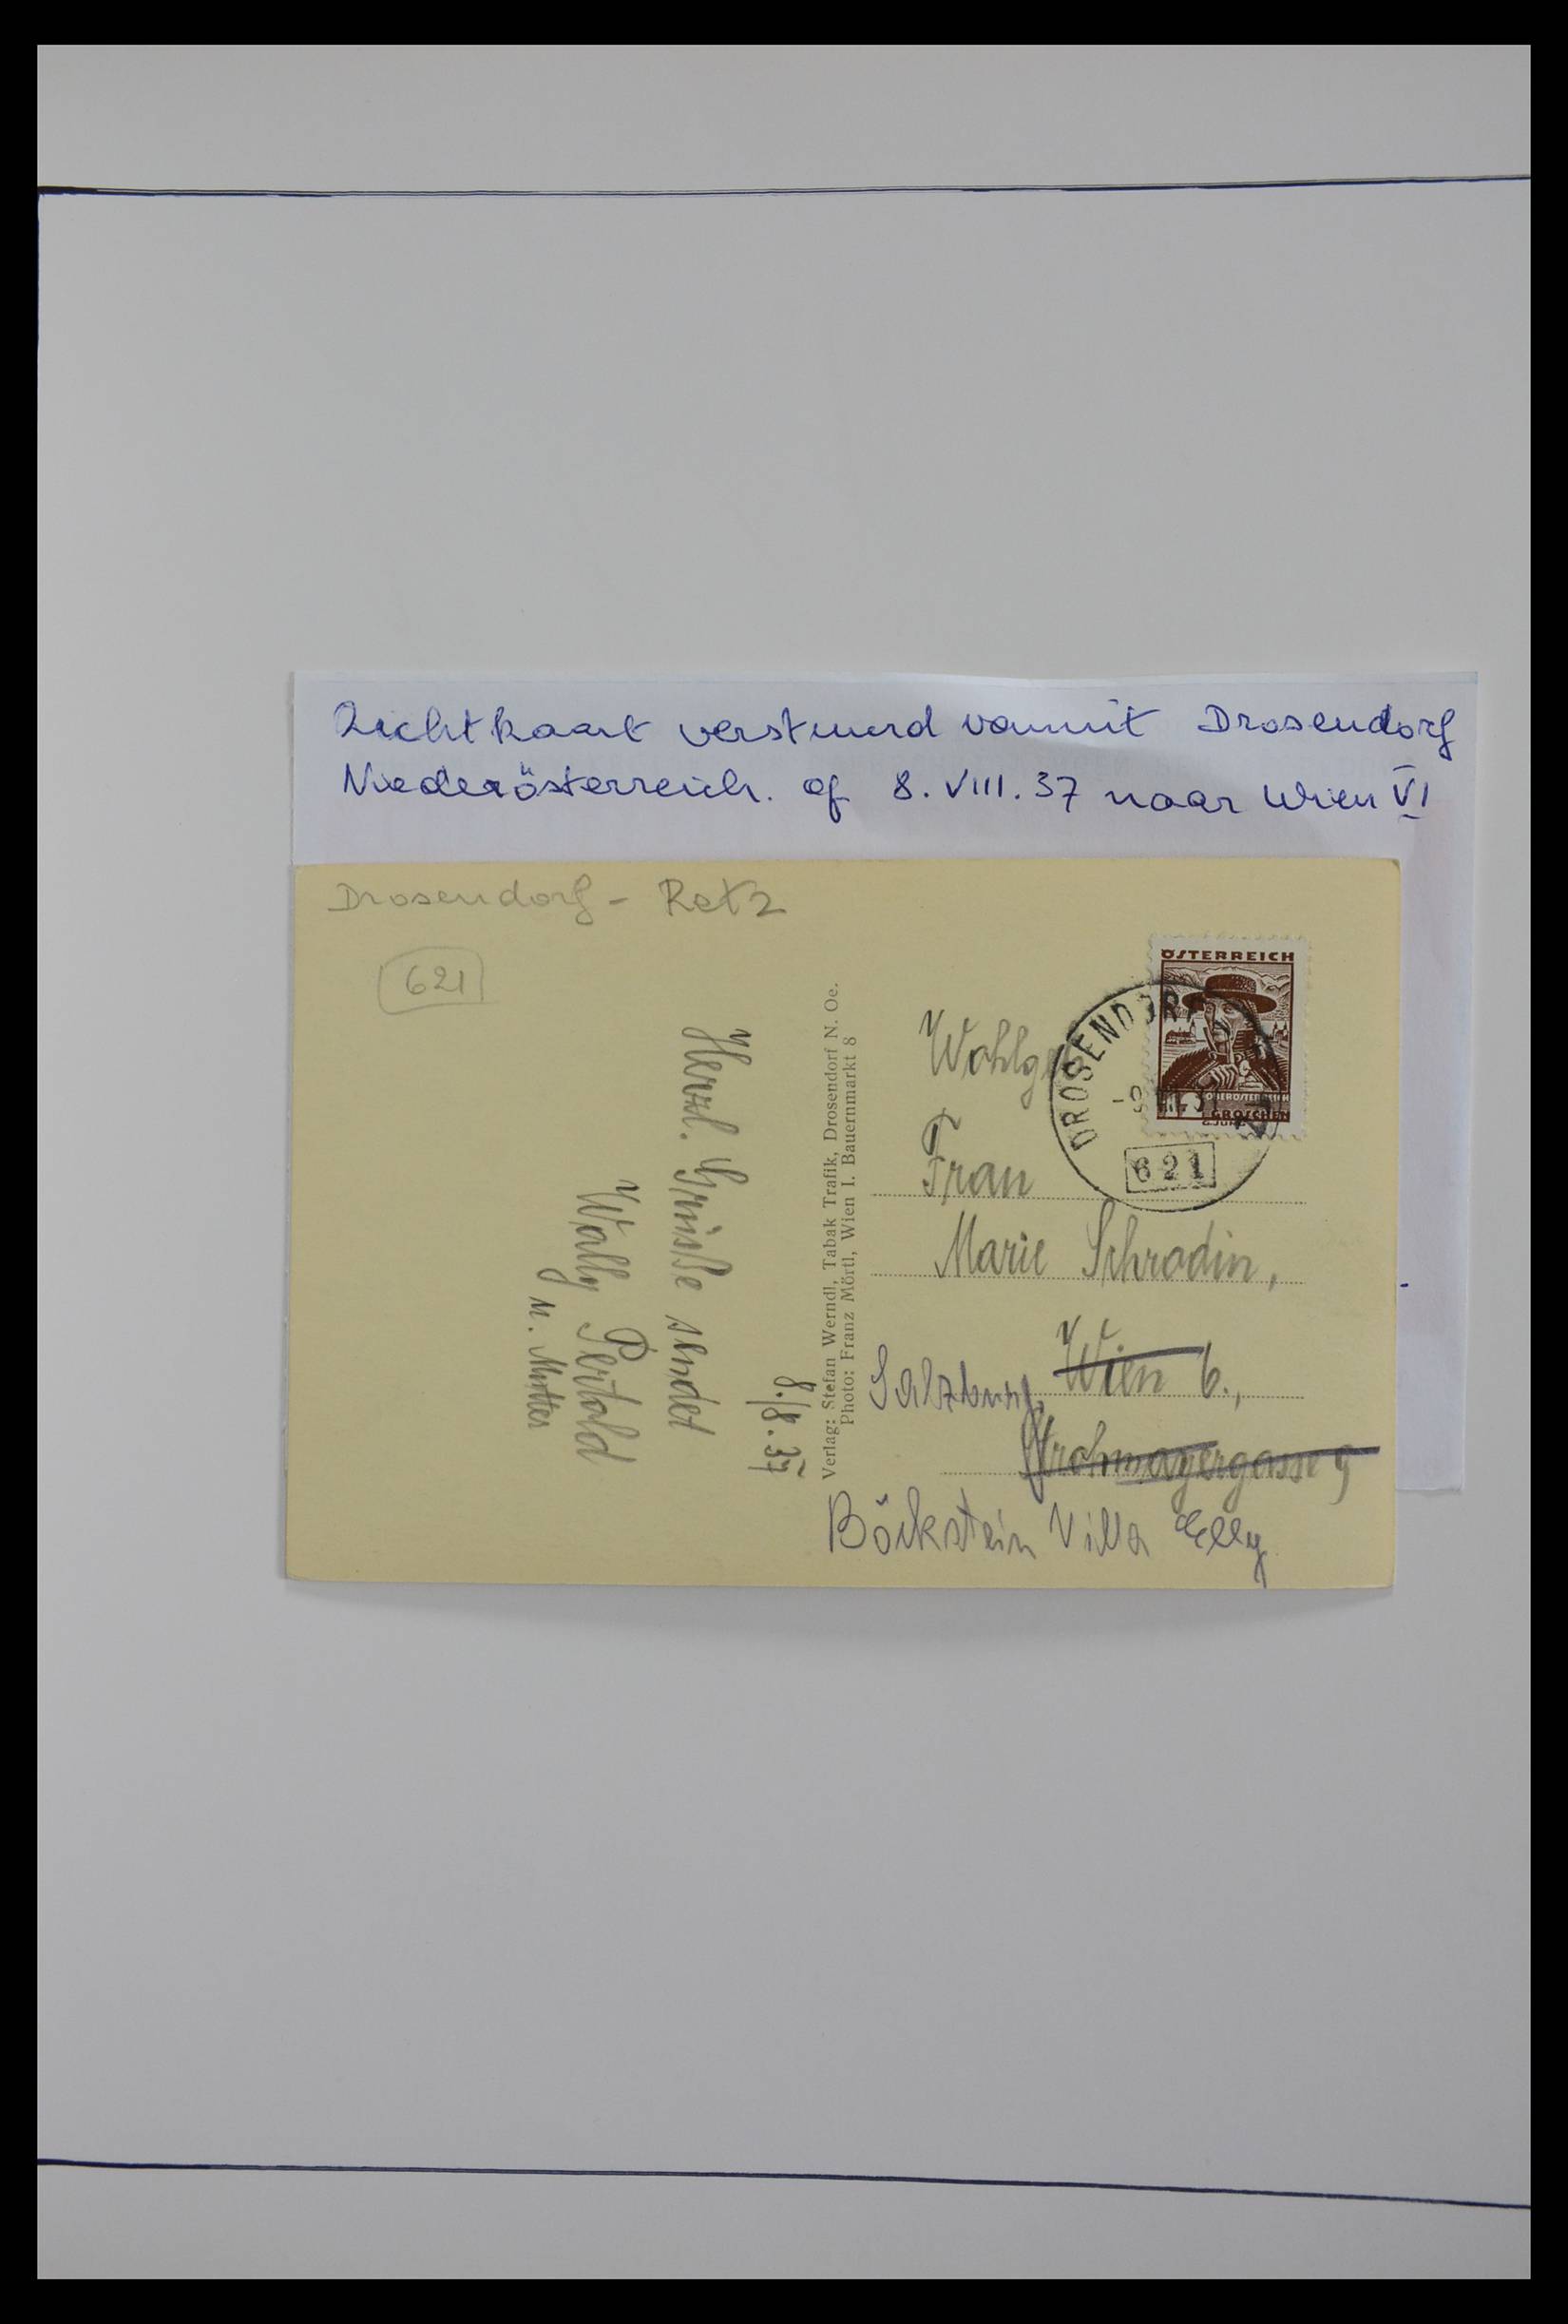 Zichtkaart verstuurd vanuit Drosendorf
Niederösterreich. op 8. VIII. 37 naar Wien VI
Drosendorf - Retz
621
ÖSTERREICH
OBERÖSTERREICH
3 GROSCHEN
DROSENDORF
VIII. 37
621
Wohlgeb
Frau
Marie Schrodin,
Wien 6.,
Salzburg,
Strohmayergasse 9
Böckstein Villa Elly
Verlag: Stefan Werndl, Tabak Trafik, Drosendorf N. Oe.
Photo: Franz Mörtl, Wien I. Bauernmarkt 8
8./8. 37
Herzl. Grüsse sendet
Wally Pertold
u. Mutter